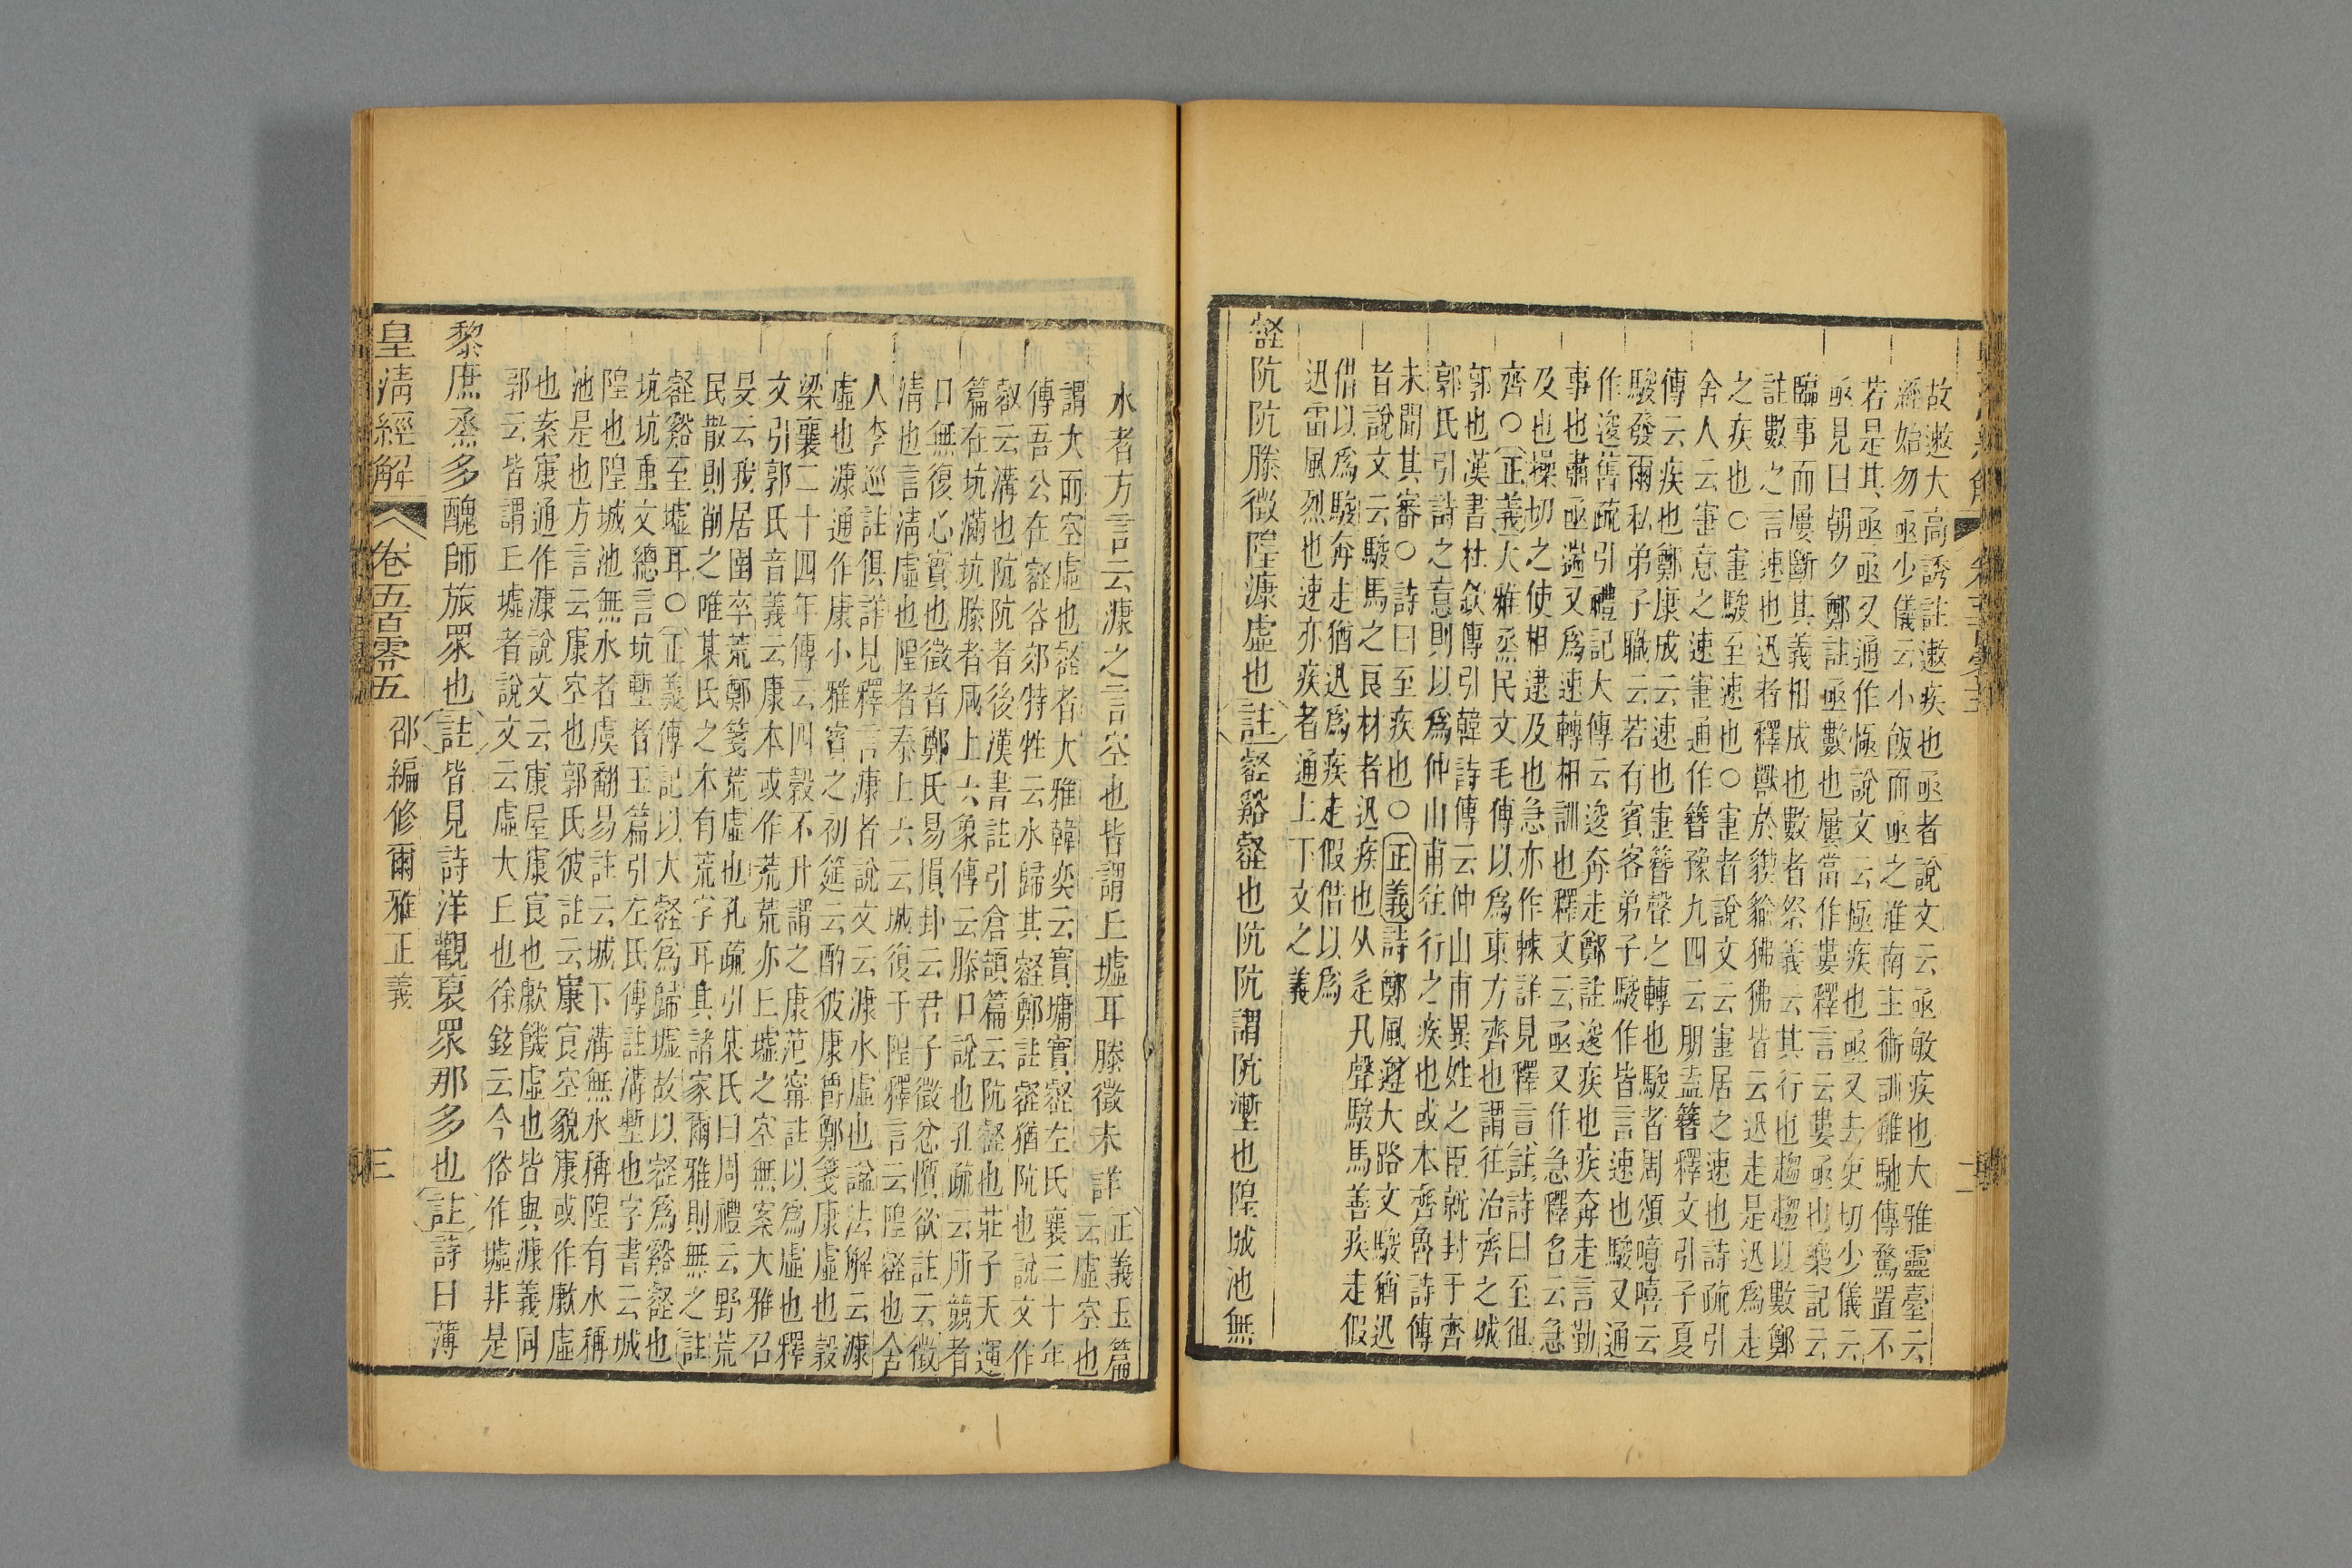 故遬大高誘註遬疾也亟者說文云亟敏疾也大雅靈臺云
經始勿亟少儀云小飯而亟之淮南主術訓雖馳傳騖置不
若是其亟亟又通作悈說文云悈疾也亟又去吏切少儀云
亟見曰朝夕鄭註亟數也屢當作婁釋言云婁亟也樂記云
臨事而屢斷其義相成也數者祭義云其行也趨趨以數鄭
註數之言速也迅者釋獸於貄貐狒狒皆云迅走是迅爲走
之疾也○寁駿至速也○寁者說文云寁居之速也詩疏引
舍人云寁意之速寁通作簪豫九四云朋盍簪釋文引子夏
傳云疾也鄭康成云速也寁簪聲之轉也駿者周頌噫嘻云
駿發爾私弟子職云若有賓客弟子駿作皆言速也駿又通
作逡舊疏引禮記大傳云逡奔走鄭註逡疾也疾奔走言勤
事也肅亟遄又爲速轉相訓也釋文云亟又作急釋名云急
及也操切之使相逮及也急亦作𣗥詳見釋言註詩曰至徂
齊○正義大雅烝民文毛傳以爲東方齊也謂往治齊之城
郭也漢書杜欽傳引韓詩傳云仲山甫異姓之臣就封于齊
郭氏引詩之意則以爲仲山甫往行之疾也或本齊魯詩傳
未聞其審○詩曰至疾也○正義詩鄭風遵大路文駿猶迅
者說文云駿馬之良材者迅疾也从辵卂聲駿馬善疾走假
借以爲駿奔走猶迅爲疾走假借以爲
迅雷風烈也速亦疾者通上下文之義
壑阬阬滕徵隍漮虛也註壑谿壑也阬阬謂阬壍也隍城池無
水者方言云漮之言空也皆謂丘墟耳滕徵未詳正義玉篇
云虛空也
謂大而空虛也壑者大雅韓奕云實墉實壑左氏襄三十年
傳吾公在壑谷郊特牲云水歸其壑鄭註壑猶阬也說文作
叡云溝也阬阬者後漢書註引倉頡篇云阬壑也莊子天運
篇在坑滿坑滕者咸上六象傳云滕口說也孔疏云所競者
口無復心實也徵者鄭氏易損卦云君子徵忿懫欲註云徵
清也言清虛也隍者泰上六云城復于隍釋言云隍壑也舍
人李巡註俱詳見釋言漮者說文云漮水虛也諡法解云漮
虛也漮通作康小雅賓之初筵云酌彼康爵鄭箋康虛也穀
梁襄二十四年傳云四穀不升謂之康范甯註以爲虛也釋
文引郭氏音義云康本或作荒荒亦丘墟之空無案大雅召
旻云我居圉卒荒鄭箋荒虛也孔疏引某氏曰周禮云野荒
民散則削之唯某氏之本有荒字耳其諸家爾雅則無之註
壑谿至墟耳○正義傳記以大壑爲歸墟故以壑爲谿壑也
坑坑重文總言坑塹者玉篇引左氏傳註溝塹也字書云城
隍也隍城池無水者虞翻易註云城下溝無水稱隍有水稱
池是也方言云康空也郭氏彼註云㝩㝗空貌㝩或作歑虛
也案㝩通作漮說文云㝩屋康㝗也歑饑虛也皆與漮義同
郭云皆謂丘墟者說文云虛大丘也徐鉉云今俗作墟非是
黎庶烝多醜師旅眾也註皆見詩洋觀裒眾那多也註詩曰薄
皇清經解
卷五百零五
邵編修爾雅正義
三